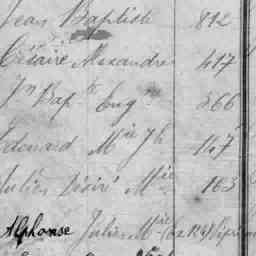 Jean Baptiste 812
Césaire Alexandre 417
Jn Bapte Eugne 366
Edouard Mie Jh 147
Julien Désiré Mie 163
Alphonse Jules Mie